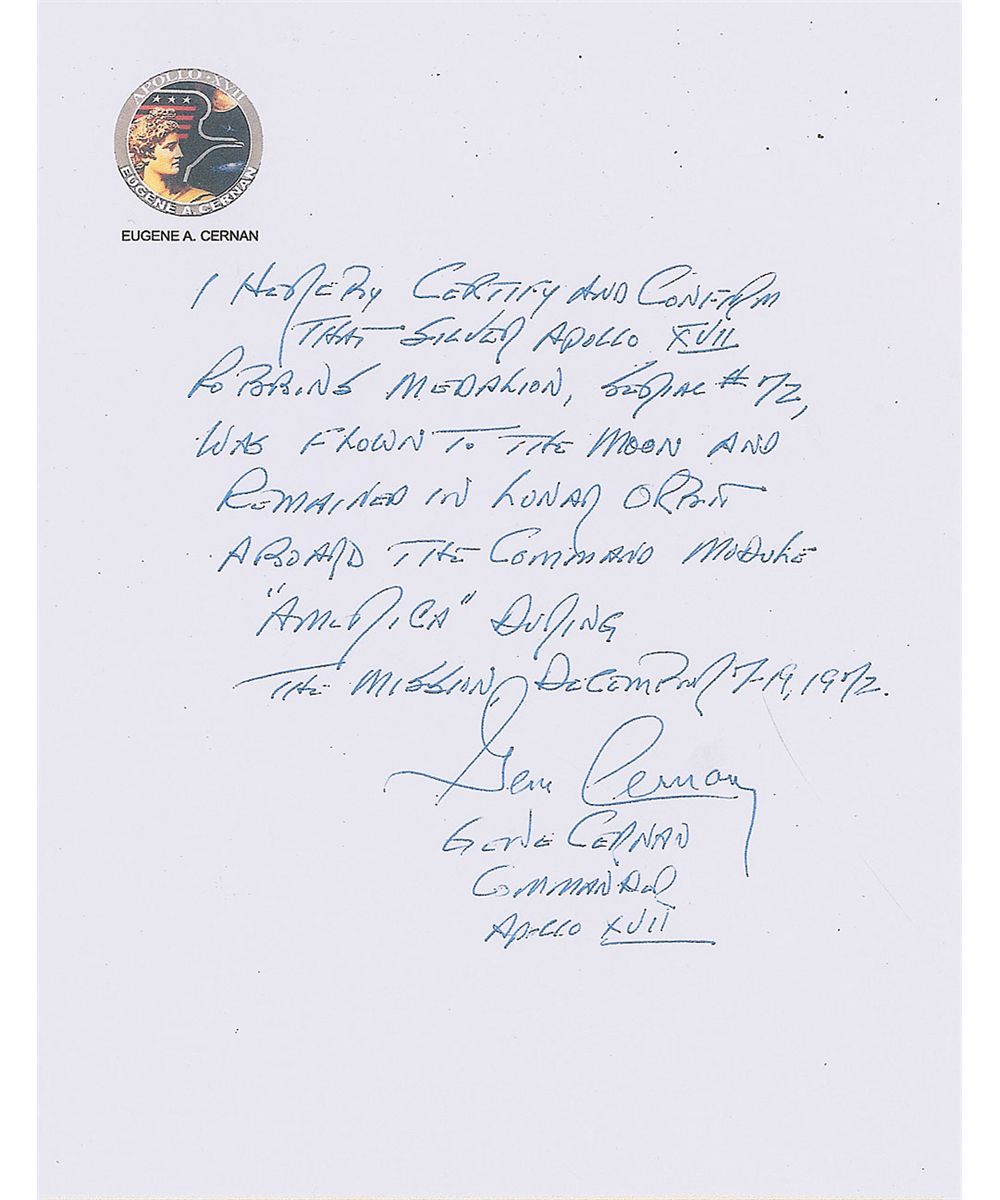 APOLLO XVII
EUGENE A. CERNAN
EUGENE A. CERNAN
I HEREBY CERTIFY AND CONFIRM
THAT SILVER APOLLO XVII
ROBBINS MEDALION, SERIAL # 72,
WAS FLOWN TO THE MOON AND
REMAINED IN LUNAR ORBIT
ABOARD THE COMMAND MODULE
"AMERICA" DURING
THE MISSION, DECEMBER 7-19, 1972.
Gene Cernan
GENE CERNAN
COMMANDER
APOLLO XVII